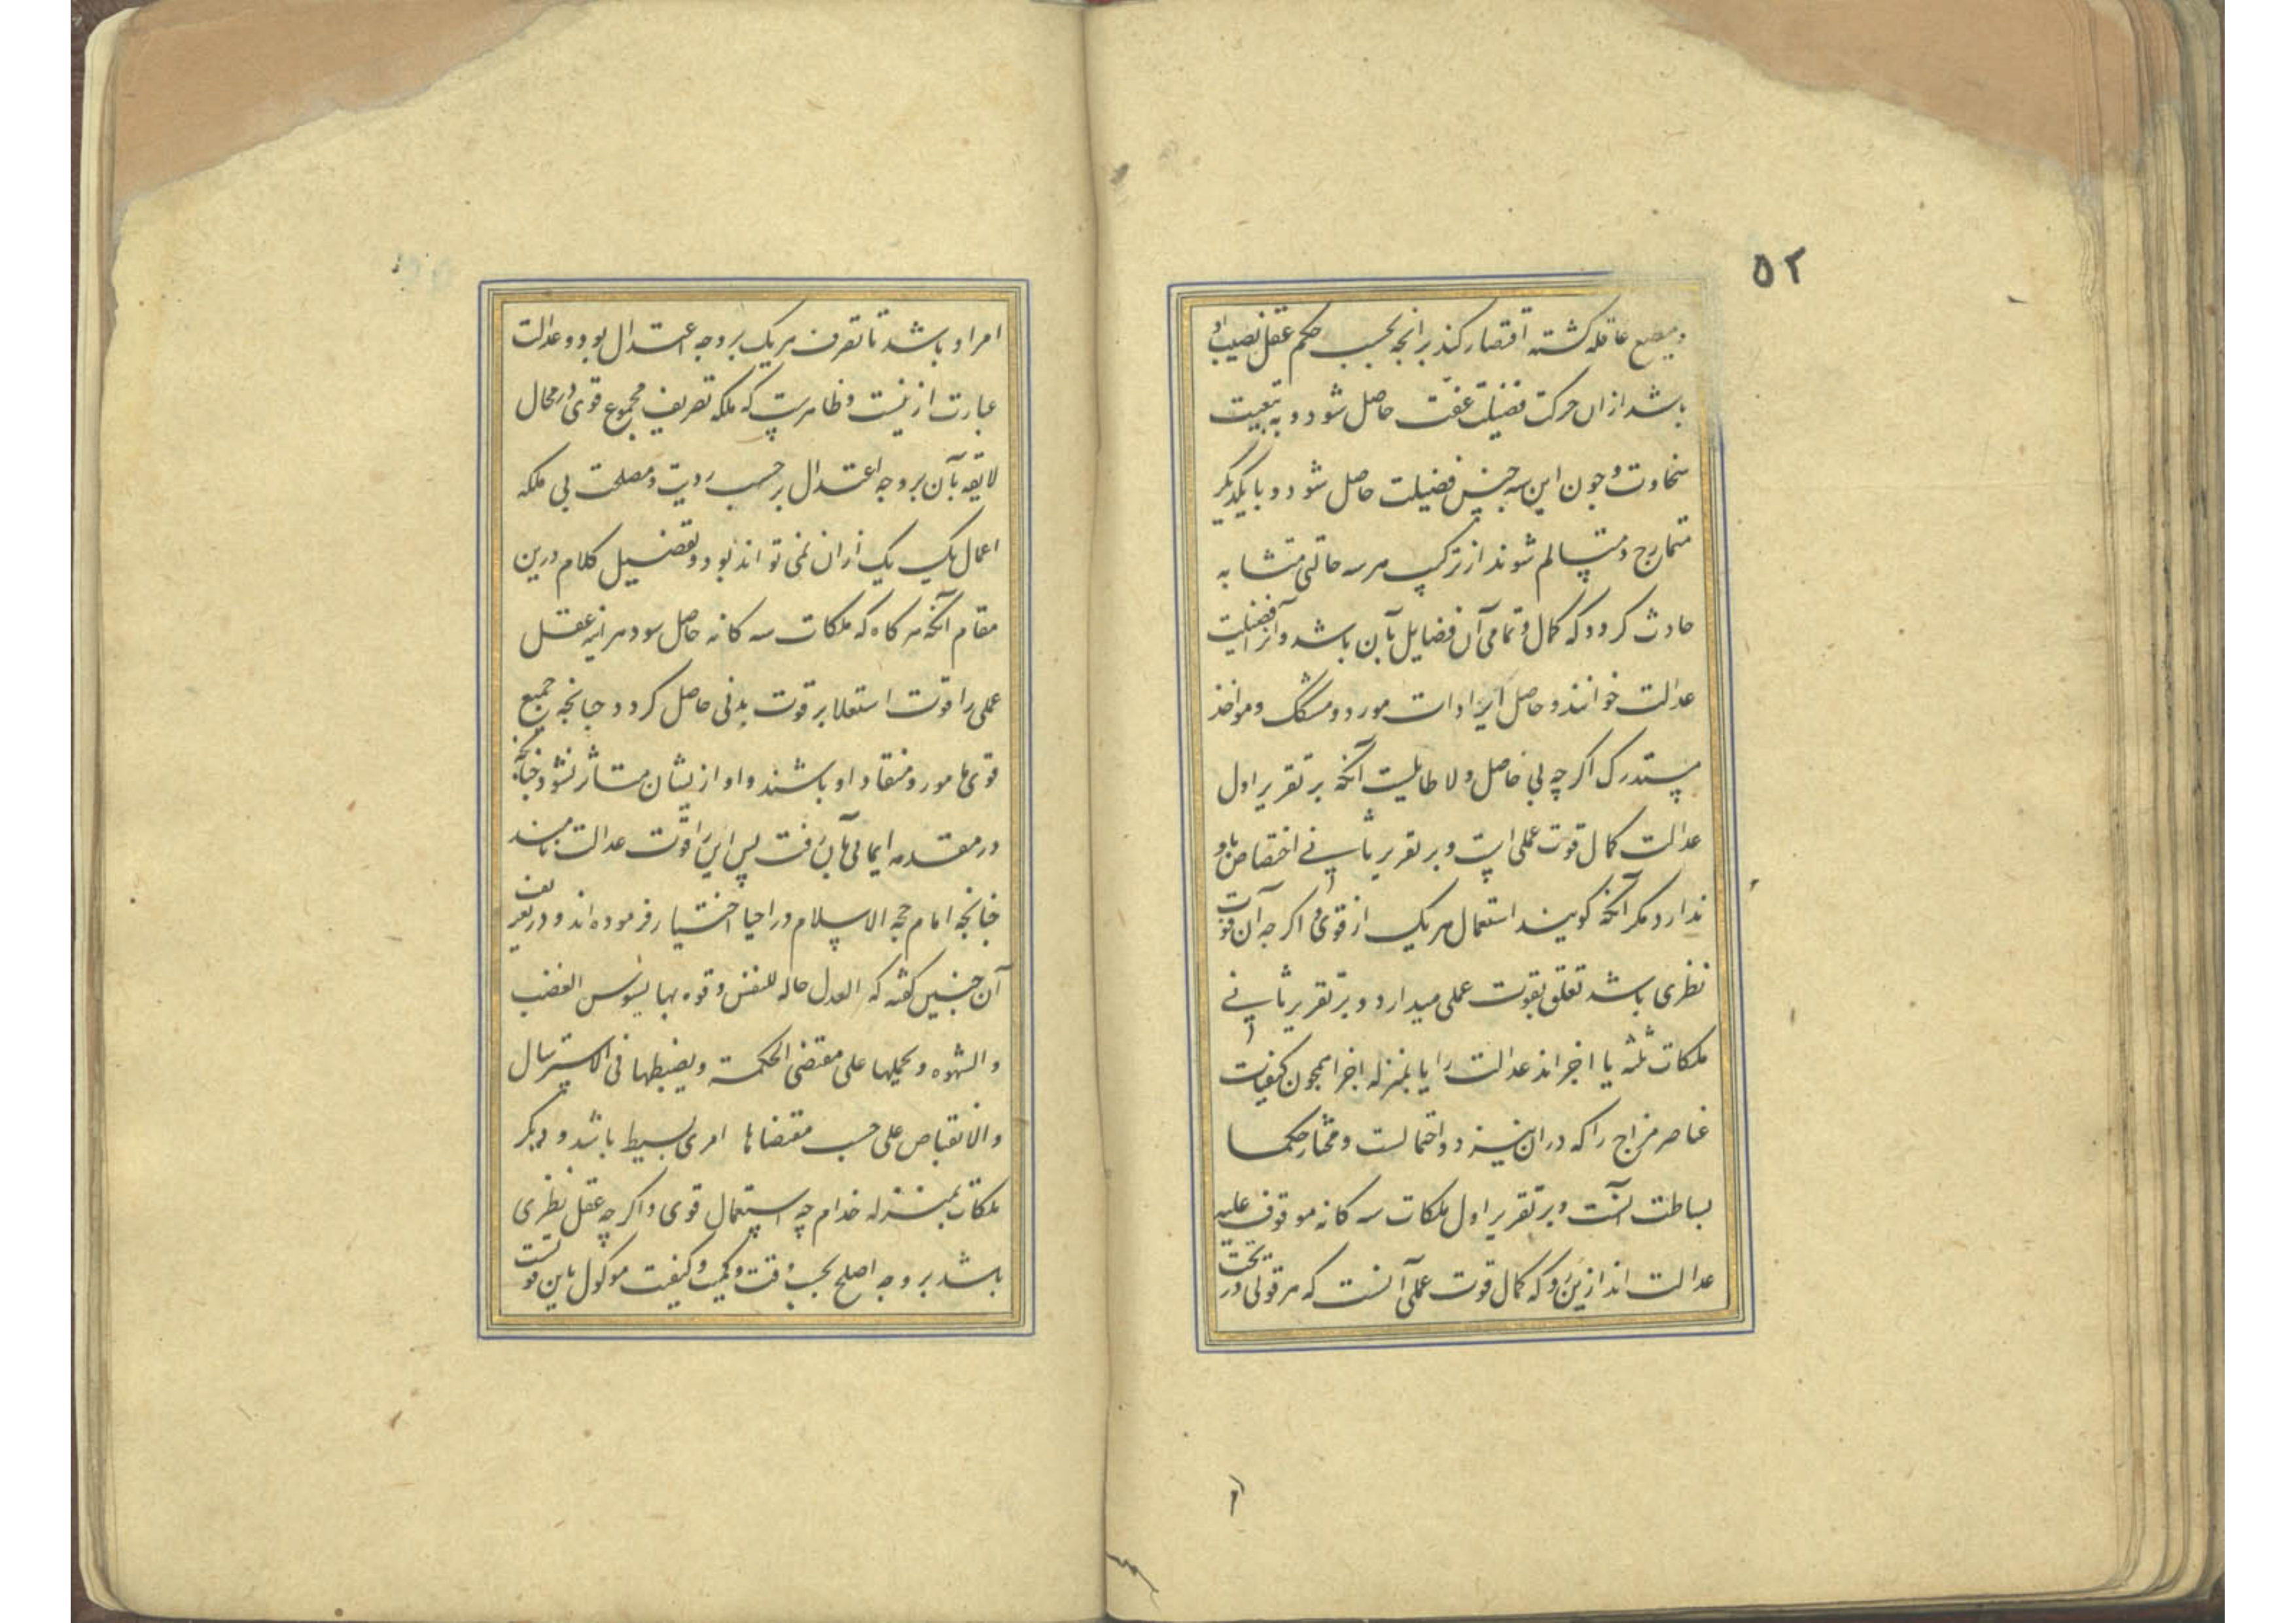 ۵۲
و مطیع عاقله کشته اقتصار کند برانچه بحسب حکم عقل نصیب او
باشد ازان حرکت فضیلت عفت حاصل شود و به تبعیت
سخاوت و چون این سه جنس فضیلت حاصل شود و با یکدیگر
متمازج و متسالم شوند از ترکب هر سه حالتی متشابه
حادث کردد که کمال و تمامی آن فضایل بآن باشد و آنرا فضیلت
عدالت خوانند و حاصل ایرادات مورد و مسلک و مواخذ
مستدرک اکر چه بی حاصل و لا طایلست آنکه بر تقریر اول
عدالت کمال قوت عملی است و بر تقریر ثانی اختصاص باو
ندارد مکر آنکه کویند استعمال هر یک از قوی و اکر چه آن قوت
نظری باشد تعلق بقوت عملی میدارد و بر تقریر ثانی
ملکات ثلثه یا اجزااند عدالت را یا بمنزله اجزا همچون کیفیات
عناصر مزاج را که دران نیز دو احتمالست و مختار حکما
بساطت آنست و بر تقریر اول ملکات سه کانه موقوف علیه
عدالت اند ازین رو که کمال قوت عملی آنست که هر قوتی در تحت
امر او باشد تا تصرف هر یک بر وجه اعتدال بود و عدالت
عبارت ازینست و ظاهرست که ملکه تصریف مجموع قوی در محال
لایقه بآن بر وجه اعتدال بر حسب رویت و مصلحت بی ملکه
اعمال یک یک ازان نمی تواند بود و تفصیل کلام درین
مقام آنکه هر کاه که ملکات سه کانه حاصل شود هر اینه عقل
عملی را قوت استعلا بر قوت بدنی حاصل کردد چنانچه جمیع
قوی مامور و منقاد او باشند و او ازیشان متاثر نشود چنانکه
در مقدمه ایمائی بآن رفت پس این را قوت عدالت نامند
چنانچه امام حجه الاسلام در احیا اختیار فرموده اند و در تعریف
آن چنین کفته که العدل حاله للنفس و قوه بها یسوس الغضب
والشهوه و یحملها علی مقتضی الحکمة و یضبطها فی الاسترسال
والانقباض علی حسب مقتضاها امری بسیط باشد و دیکر
ملکات بمنزله خدام چه استعمال قوی و اکر چه عقل نظری
باشد بر وجه اصلح بحسب وقت و کمیت و کیفیت موکول باین قوتست